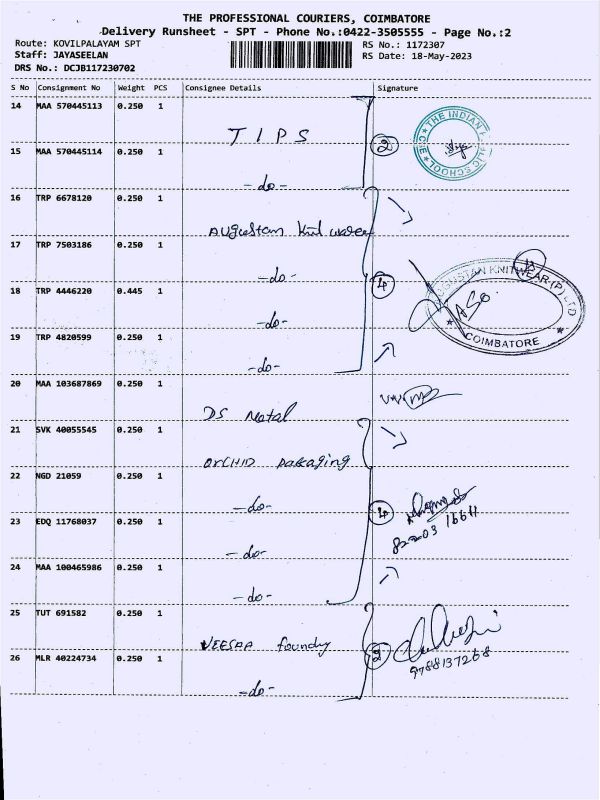 THE PROFESSIONAL COURIERS, COIMBATORE
Delivery Runsheet - SPT - Phone No.:0422-3505555 - Page No.:2
Route: KOVILPALAYAM SPT
Staff: JAYASEELAN
DRS No.: DCJB117230702
RS No.: 1172307
RS Date: 18-May-2023
S No Consignment No Weight PCS Consignee Details Signature
14 MAA 570445113 0.250 1 TIPS
15 MAA 570445114 0.250 1 -do-
2
THE INDIAN PUBLIC SCHOOL
16 TRP 6678120 0.250 1 Augustan Knit wear
17 TRP 7503186 0.250 1 -do-
18 TRP 4446220 0.445 1 -do-
19 TRP 4820599 0.250 1 -do-
4
AUGUSTAN KNITWEAR (P) LTD
COIMBATORE
20 MAA 103687869 0.250 1 DS Metal
21 SVK 40055545 0.250 1 ORCHID Packaging
22 NGD 21059 0.250 1 -do-
23 EDQ 11768037 0.250 1 -do-
24 MAA 100465986 0.250 1 -do-
4
25 TUT 691582 0.250 1 VEESAA foundry
26 MLR 40224734 0.250 1 -do-
2
9788137268